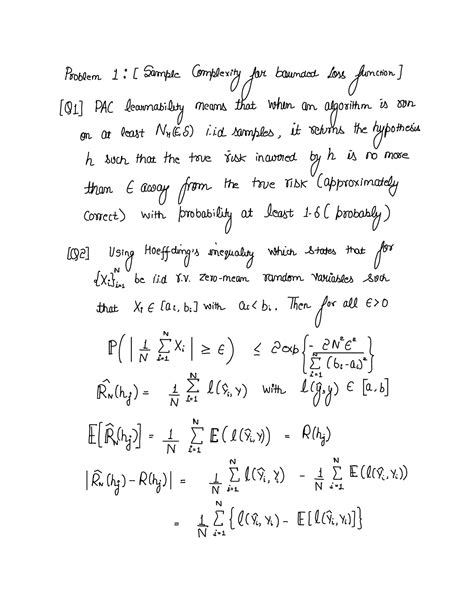 Problem 1: [ Sample Complexity for bounded loss function ]
[Q1] PAC learnability means that when an algorithm is run
on at least N_H(ε,δ) i.i.d samples, it returns the hypothesis
h such that the true risk incurred by h is no more
than ε away from the true risk (approximately
correct) with probability at least 1-δ (probably)
[Q2] Using Hoeffding's inequality which states that for
{X_i}_{i=1}^N be i.i.d r.v. zero-mean random variables such
that X_i ∈ [a_i, b_i] with a_i < b_i. Then for all ε>0
ℙ( | 1/N ∑_{i=1}^N X_i | ≥ ε ) ≤ 2 exp{ - 2N²ε² / ∑_{i=1}^N (b_i-a_i)² }
R̂_N(h_j) = 1/N ∑_{i=1}^N l(ŷ_i, y) with l(ŷ,y) ∈ [a,b]
𝔼[R̂_N(h_j)] = 1/N ∑_{i=1}^N 𝔼(l(ŷ_i,y)) = R(h_j)
|R̂_N(h_j) - R(h_j)| = 1/N ∑_{i=1}^N l(ŷ_i, y) - 1/N ∑_{i=1}^N 𝔼(l(ŷ_i, y_i))
= 1/N ∑_{i=1}^N { l(ŷ_i, y_i) - 𝔼[l(ŷ_i, y_i)] }